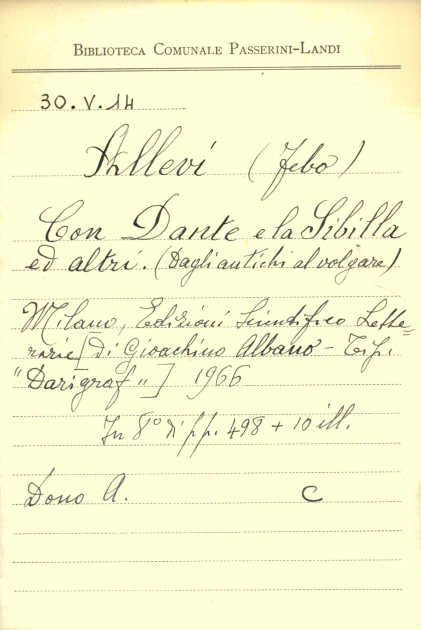 BIBLIOTECA COMUNALE PASSERINI-LANDI
30. V. 14
Allevi (Febo)
Con Dante e la Sibilla
ed altri. (Dagli antichi al volgare)
Milano, Edizioni Scientifico Lette=
rarie [di Gioachino Albano - Tip.
"Darigraf"] 1966
In 8° di pp. 498 + 10 ill.
Dono A. C